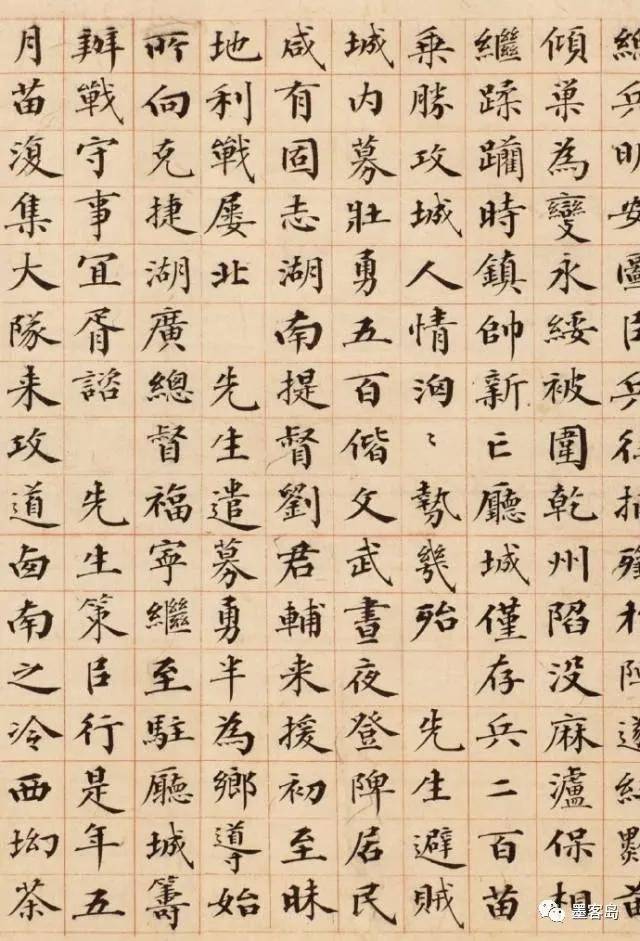 總兵明安圖
傾巢為變永綏被圍乾州陷没麻瀘保相
繼蹂躪時鎮帥新亡廳城僅存兵二百苗
乘勝攻城人情洶〻勢幾殆 先生避賊
城内募壯勇五百偕文武晝夜登陴居民
咸有固志湖南提督劉君輔来援初至昧
地利戰屢北 先生遣募勇半為鄉導始
所向克捷湖廣總督福寧繼至駐廳城籌
辦戰守事宜胥諮 先生策㠯行是年五
月苗復集大隊来攻道卥南之冷西坳茶
墨客岛